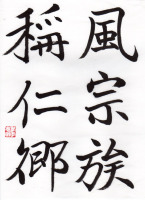 風宗族
稱仁鄉